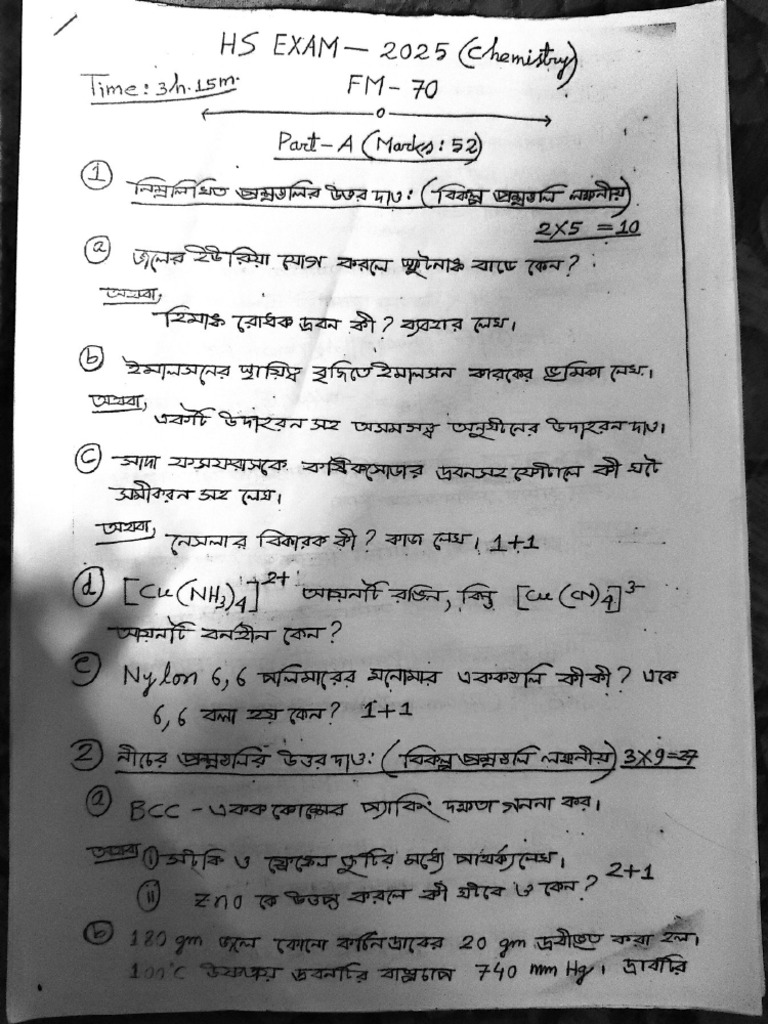 HS EXAM — 2025 (Chemistry)
Time: 3h. 15m.
FM - 70
Part-A (Marks: 52)
① নিম্নলিখিত প্রশ্নগুলির উত্তর দাও: (বিকল্প প্রশ্নগুলি লক্ষনীয়)
2×5 = 10
ⓐ জলের ইউরিয়া যোগ করলে স্ফুটনাঙ্ক বাড়ে কেন?
অথবা,
হিমাঙ্ক রোধক দ্রবন কী? ব্যবহার লেখ।
ⓑ ইমালসনের স্থায়িত্ব বৃদ্ধিতে ইমালসন কারকের ভূমিকা লেখ।
অথবা,
একটি উদাহরন সহ অসমসত্ব অনুঘটনের উদাহরন দাও।
ⓒ সাদা ফসফরাসকে কস্টিকসোডার দ্রবনসহ ফোটালে কী ঘটে
সমীকরন সহ লেখ।
অথবা,
নেসলার বিকারক কী? কাজ লেখ। 1+1
ⓓ [Cu(NH3)4]2+ আয়নটি রঙিন, কিন্তু [Cu(CN)4]3-
আয়নটি বর্নহীন কেন?
ⓔ Nylon 6,6 পলিমারের মনোমার এককগুলি কী কী? একে
6,6 বলা হয় কেন? 1+1
② নীচের প্রশ্নগুলির উত্তর দাও: (বিকল্প প্রশ্নগুলি লক্ষনীয়) 3×9=27
ⓐ BCC - একক কোষের প্যাকিং দক্ষতা গননা কর।
অথবা ⓘ সটকি ও ফ্রেঙ্কেল ত্রুটির মধ্যে পার্থক্য লেখ।
ⓘⓘ ZnO কে উত্তপ্ত করলে কী ঘটবে ও কেন? 2+1
ⓑ 180 gm জলে কোনো কঠিন দ্রাবের 20 gm দ্রবীভূত করা হল।
100°C উষ্ণতায় দ্রবনটির বাষ্পচাপ 740 mm Hg। দ্রাবটির